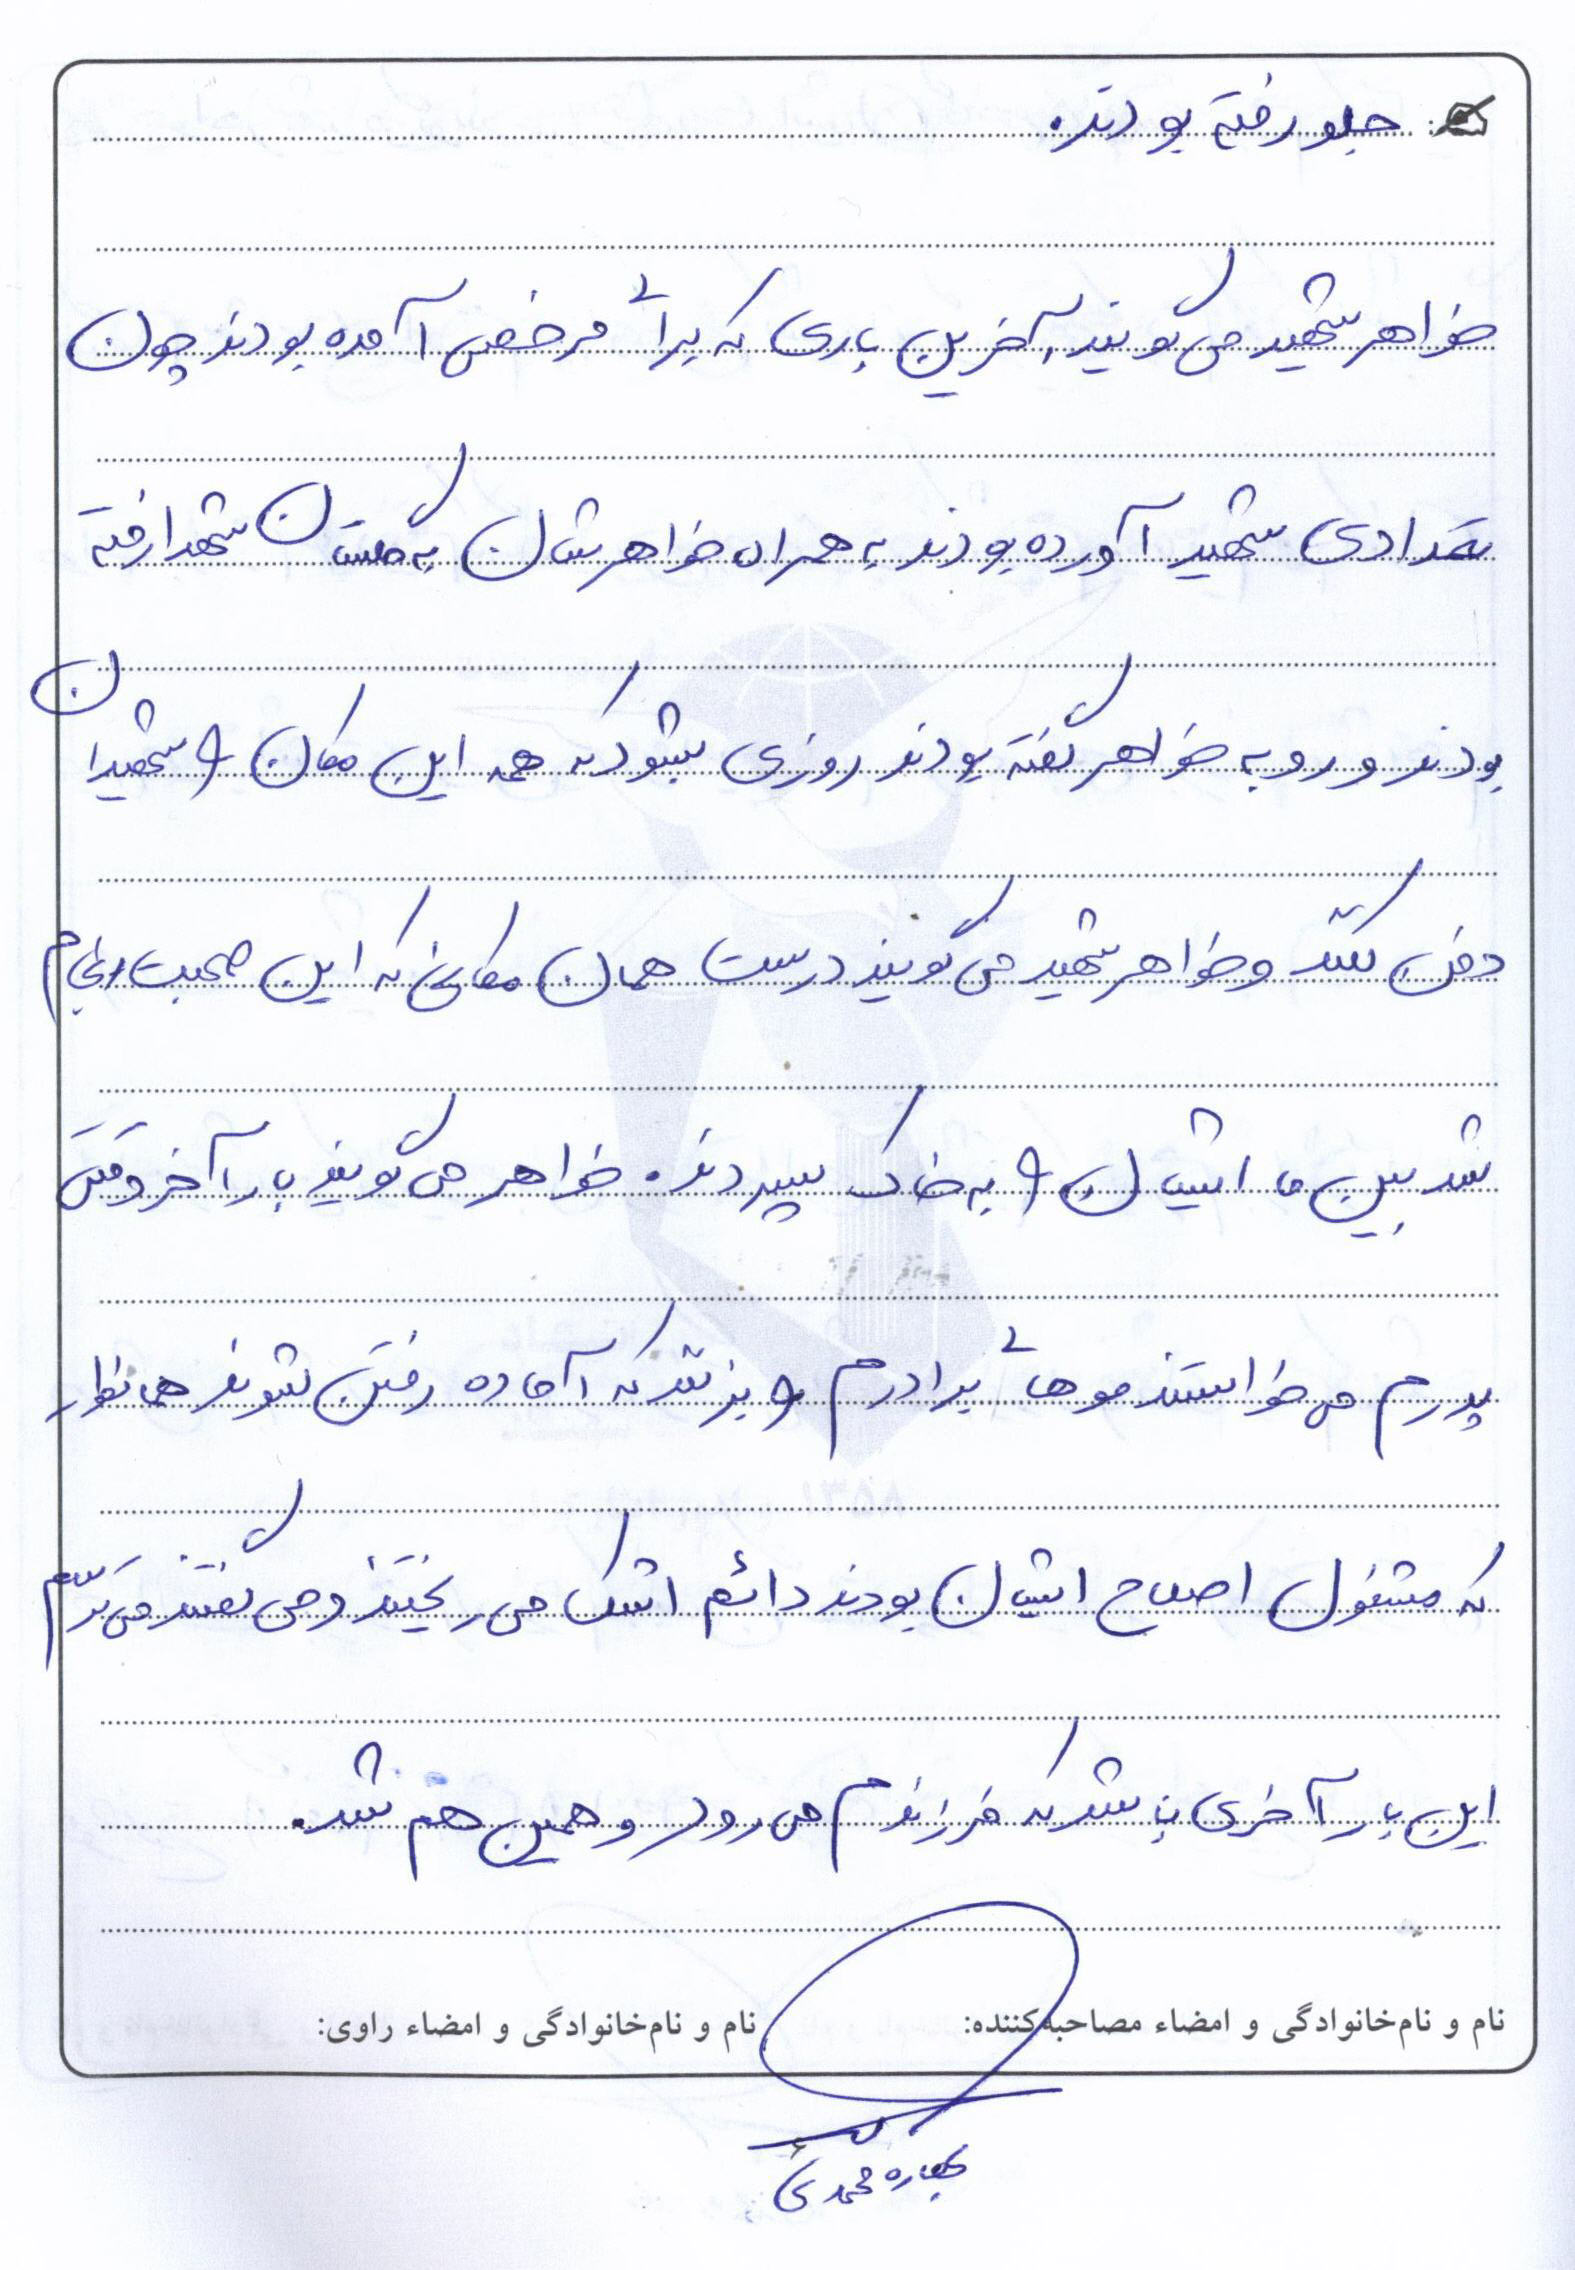 جلو رفته بودند.
خواهر شهید می گویند آخرین باری که برای مرخصی آمده بودند چون
تعدادی شهید آورده بودند به همراه خواهرشان به گلستان شهدا رفته
بودند و رو به خواهر گفته بودند روزی بشود که همه این مکان را شهیدان
دفن کنند و خواهر شهید می گویند درست همان مکانی که این صحبت انجام
شد بین ما ایشان را به خاک سپردند. خواهر می گویند بار آخر وقتی
پدرم می خواستند موهای برادرم را بزنند که آماده رفتن شوند همانطور
که مشغول اصلاح ایشان بودند دائم اشک می ریختند و می گفتند می ترسم
این بار آخری باشد که فرزندم می رود و همین هم شد.
نام و نام‌خانوادگی و امضاء مصاحبه‌کننده:
نام و نام‌خانوادگی و امضاء راوی:
بهاره محمدی